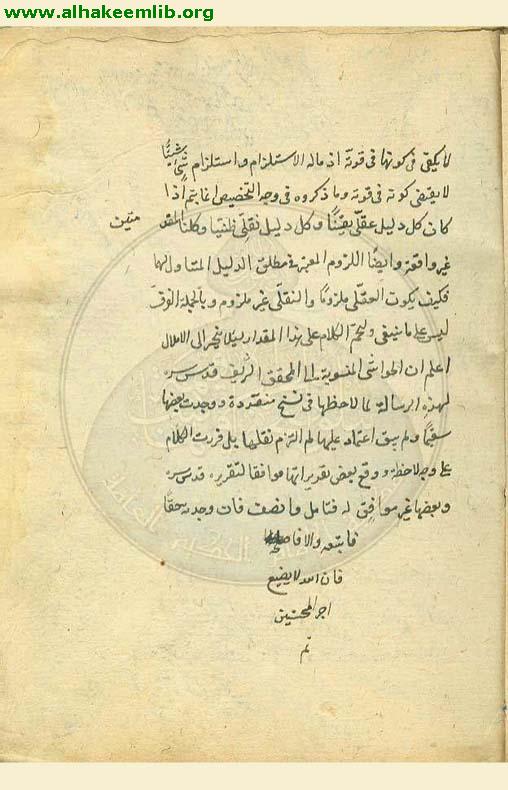 www.alhakeemlib.org
لا يكفى فى كونها فى قوته اذ ماله الاستلزام واستلزام شئ شيئًا
لا يقتضى كونه فى قوته وما ذكروه فى وجه التخصيص انما يتم اذا
كان كل دليل عقلى يقينيًا وكل دليل نقلى ظنيا وكلتا المقد
متين
غير واقعة وايضًا اللزوم المعتبر فى مطلق الدليل المتناول لهما
فكيف يكون العقلى ملزومًا والنقلى غير ملزوم وبالجملة الفرق
ليس على ما ينبغى ولنختم الكلام على هذا المقدار لئلا ينجر الى الاملال
اعلم ان الحواشى المنسوبة الى المحقق الشريف قدس سره
لهذه الرسالة لما لاحظها فى نسخ متعددة ووجدت بعضها
سقيمًا ولم يبق اعتماد عليها لم التزم نقلها بل قررت الكلام
على وجه لاحظته ووقع بعض تقديراتها موافقا لتقريره قدس سره
وبعضها غير موافق له فتامل وانصف فان وجدته حقًا
فاتبعه والا فاصلحه
فان الله لا يضيع
اجر المحسنين
تم